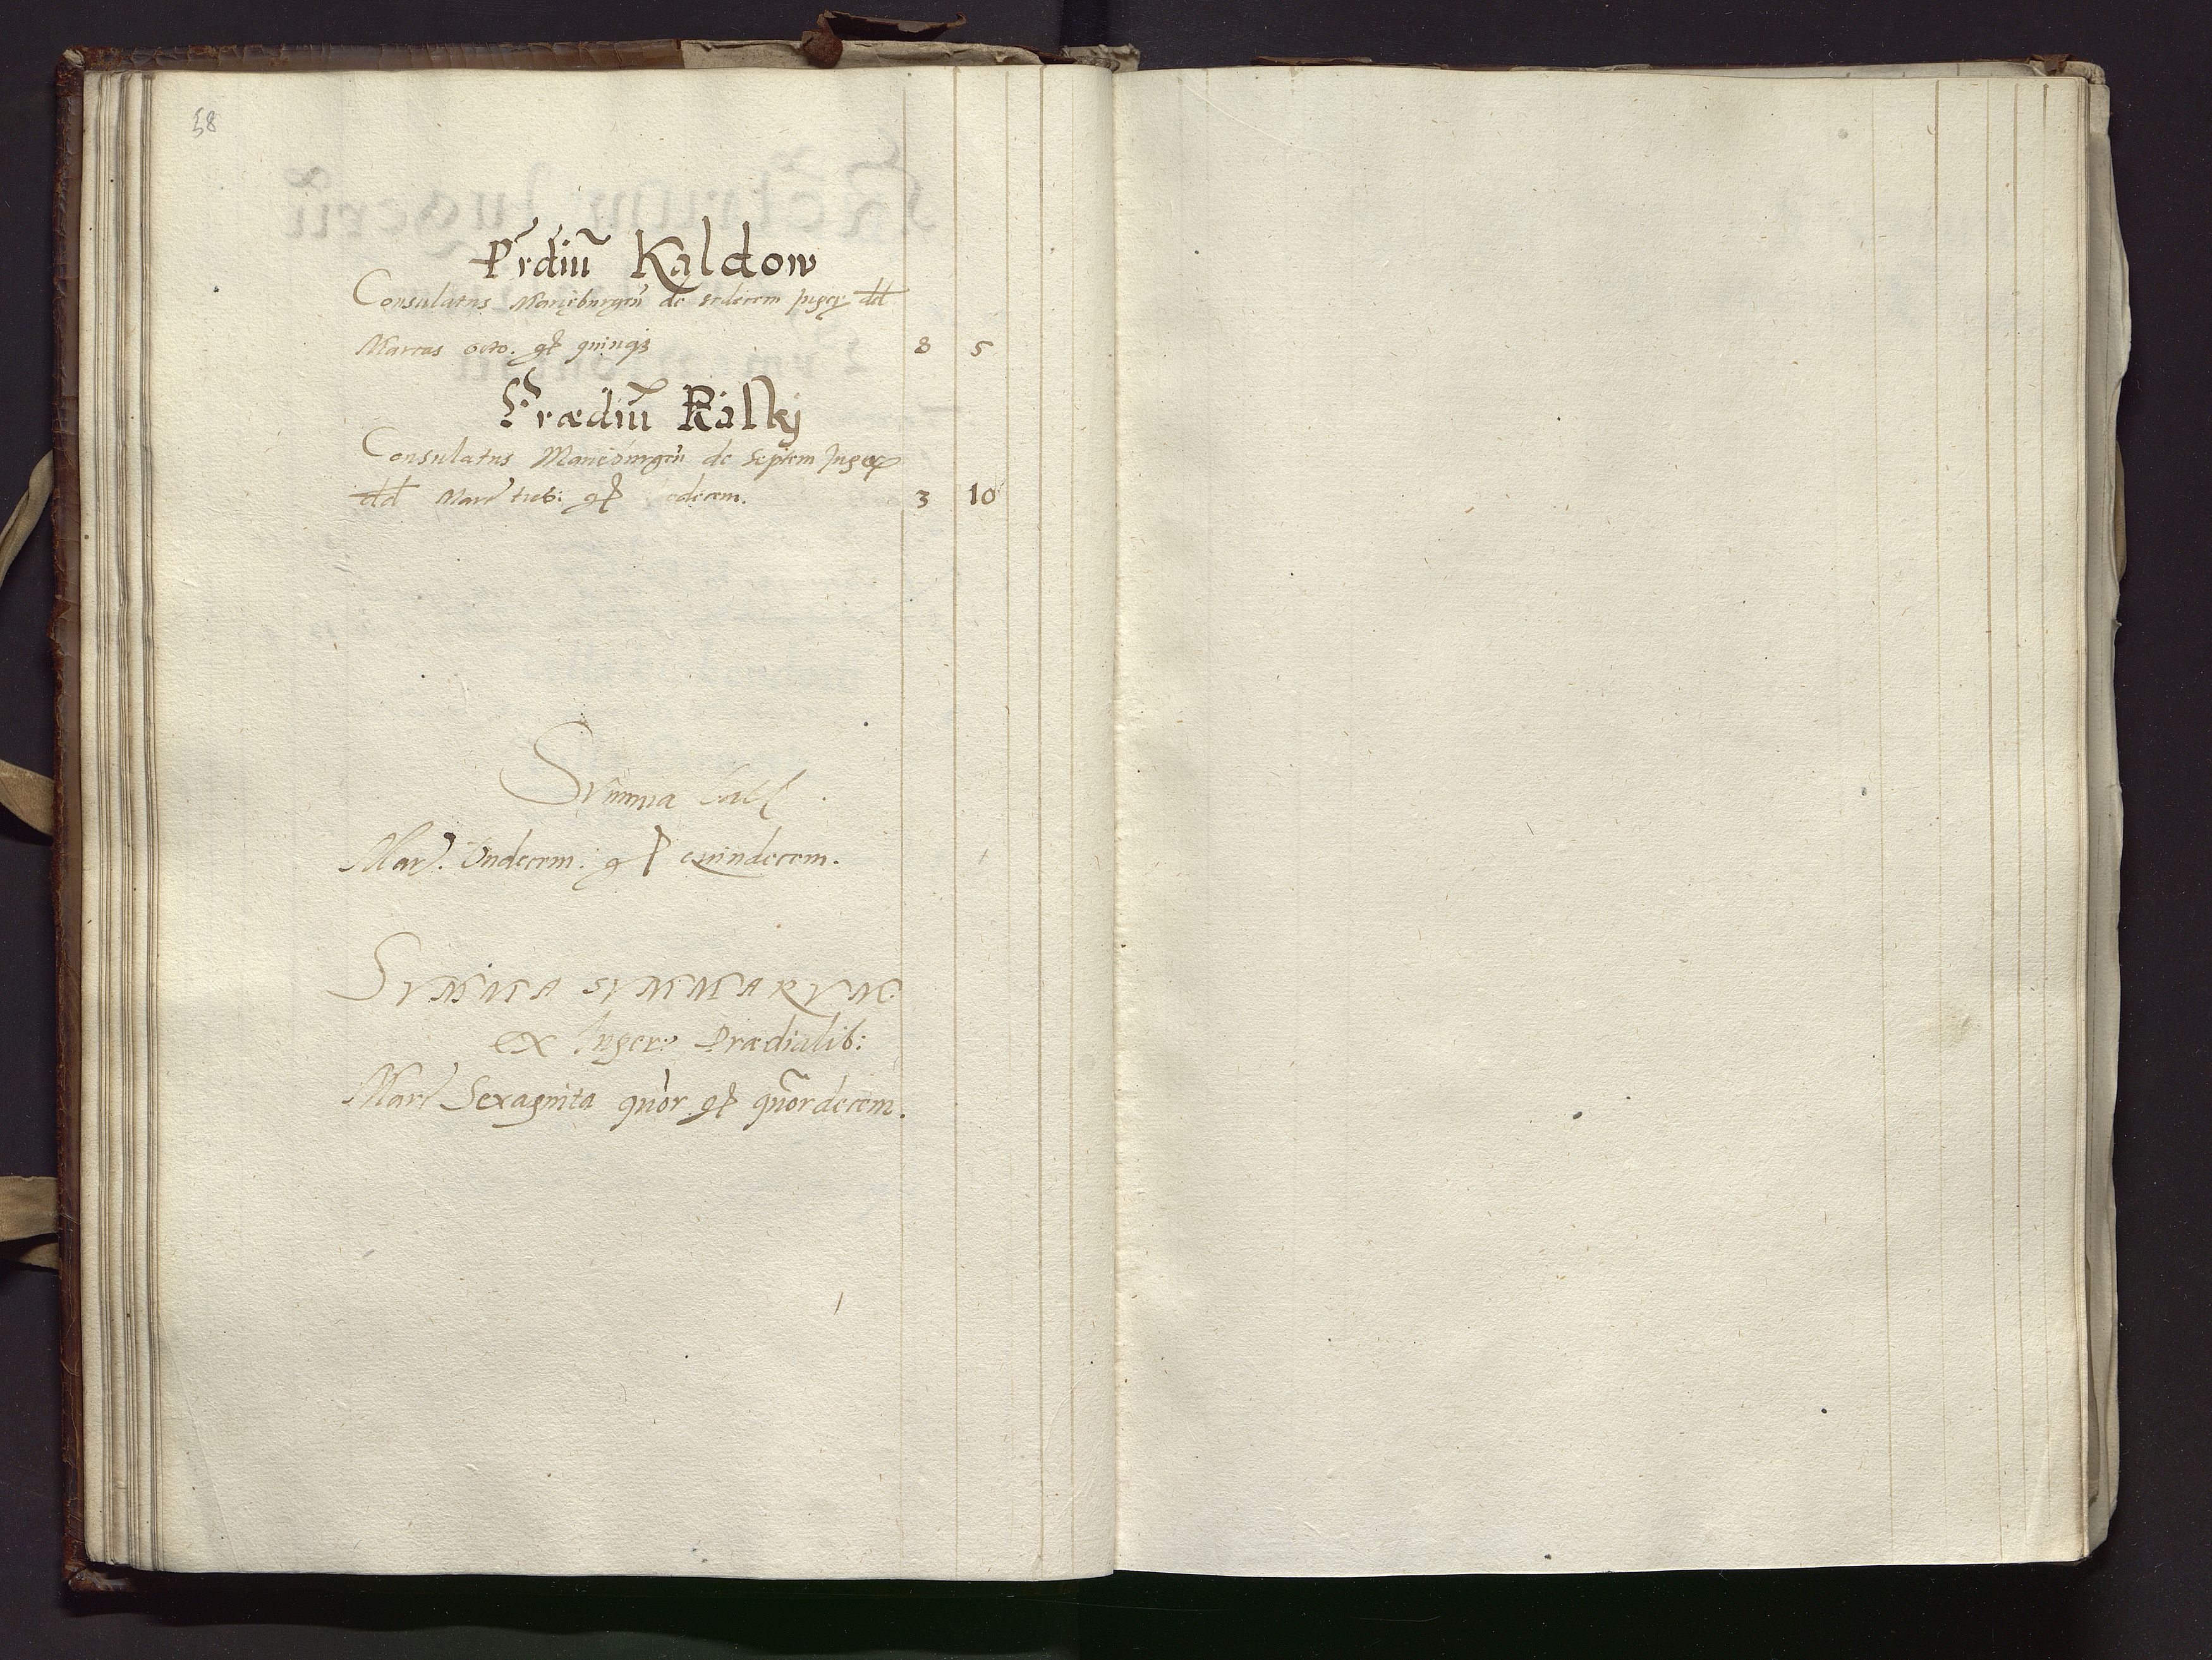 58
Prdiũ Kaldow
Consulatus Marieburgeñ de sedecem Juger dd
Marcas octo. gr quinqз 8 5
Prædiũ Kalkj
Consulatus Marieburgeñ de Septem Juger
dd Marc tres: gr decem. 3 10
Summa
Marc. Undecem: gr Quindecem.
SVMMA SVMMARVM
ex Juger: Prædialib:
Marc Sexaginta quor gr quordecem.